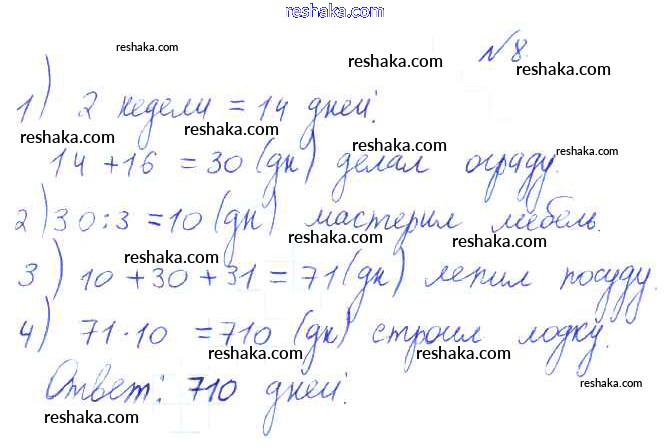 reshaka.com
reshaka.com reshaka.com №8.
reshaka.com
1) 2 недели = 14 дней.
reshaka.com reshaka.com reshaka.com
14 + 16 = 30 (дн) делал ограду.
reshaka.com
2) 30 : 3 = 10 (дн) мастерил мебель.
reshaka.com reshaka.com
3) 10 + 30 + 31 = 71 (дн) лепил посуду.
reshaka.com reshaka.com
4) 71 · 10 = 710 (дн) строил лодку.
reshaka.com reshaka.com
Ответ: 710 дней.
reshaka.com reshaka.com
reshaka.com reshaka.com